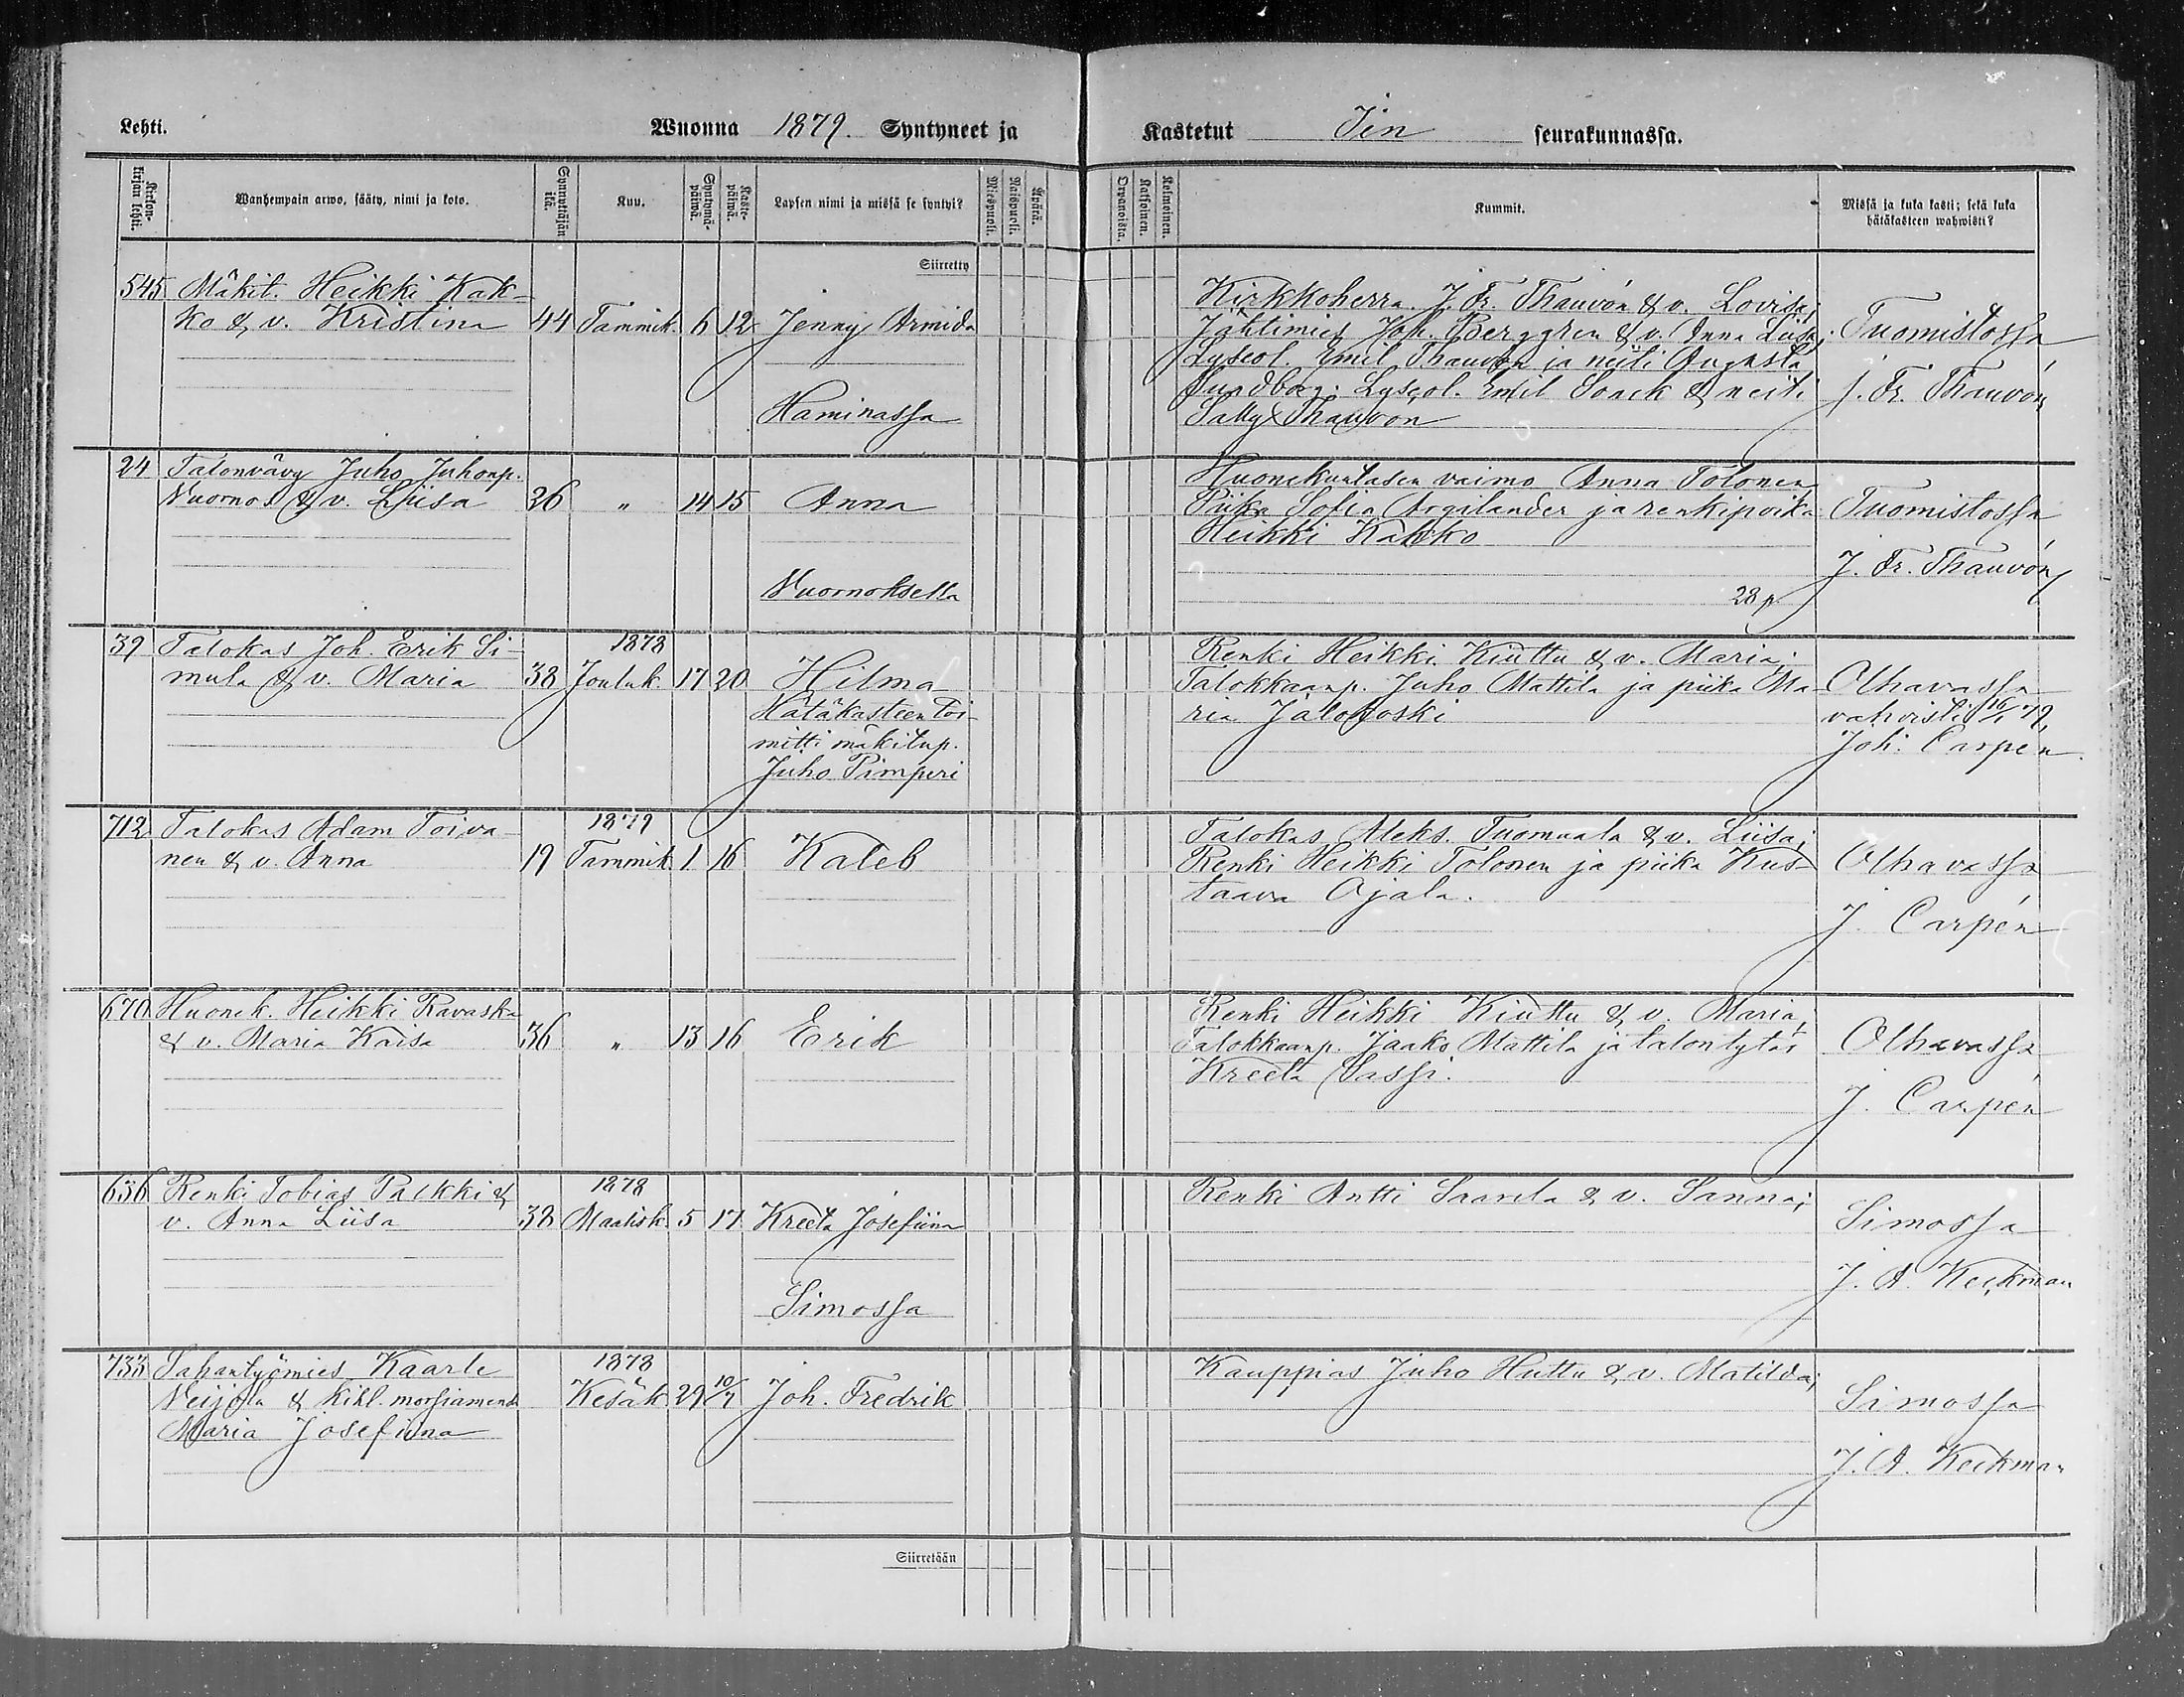 Lehti.
Wuonna 1879. Syntyneet ja
Kastetut Iin seurakunnassa.
Kirkon-kirjan lehti.
Wanhempain arwo, sääty, nimi ja koto.
Synnyttäjän ikä.
Kuu.
Syntymä-päiwä.
Kaste-päiwä.
Lapsen nimi ja missä se syntyi?
Miespuoli.
Naispuoli.
Äpärä.
Orwanoista.
Kaksoinen.
Kolmoinen.
Kummit.
Missä ja kuka kasti; sekä kuka
hätäkasteen wahwisti?
Siirretty
545 Mäkit. Heikki Kak-
ko & v. Kristina 44 Tammik. 6 12 Jenny Armida
Haminassa
Kirkkoherra J. Fr. Thauvón & v. Lovisa;
Jahtimies Joh. Berggren & v. Anna Liisa;
Lyseol. Emil Thauvón ja neiti Augusta
Sundborg; Lyseol. Emil Sonck & neiti
Sally Thauvón
Tuomistossa
J. Fr. Thauvón
24 Talonvävy Juho Juhonp.
Vuornos & v. Liisa 26 " 14 15 Anna
Vuornoksella
Huonekuntasen vaimo Anna Tolonen
Piika Sofia Argilander ja renkipoika
Heikki Kakko
28 p.
Tuomistossa
J. Fr. Thauvón
39 Talokas Joh. Erik Si-
mula & v. Maria 38 1878 Jouluk. 17 20 Hilma
Hätäkasteen toi-
mitti mäkitup.
Juho Pimperi
Renki Heikki Kiuttu & v. Maria;
Talokkaanp. Juho Mattila ja piika Ma-
ria Jalokoski
Olhavassa
vahvisti 16/1 79,
Joh. Carpén
712 Talokas Adam Toiva-
nen & v. Anna 19 1879 Tammik. 1 16 Kaleb
Talokas Aleks. Tuomaala & v. Liisa;
Renki Heikki Tolonen ja piika Kus-
taava Ojala.
Olhavassa
J. Carpén
670 Huonek. Heikki Ravaska
& v. Maria Kaisa 36 " 13 16 Erik
Renki Heikki Kiuttu & v. Maria;
Talokkaanp. Jaako Mattila ja talontytär
Kreeta Sassi.
Olhavassa
J. Carpén
656 Renki Tobias Palkki &
v. Anna Liisa 38 1878 Maalisk. 5 17 Kreeta Josefiina
Simossa
Renki Antti Saarela & v. Sanna;
Simossa
J. A. Keckman
733 Sahantyömies Kaarle
Veijola & kihl. morsiamensa
Maria Josefiina 1878 Kesäk. 29 10/7 Joh. Fredrik
Kauppias Juho Huttu & v. Matilda;
Simossa
J. A. Keckman
Siirretään